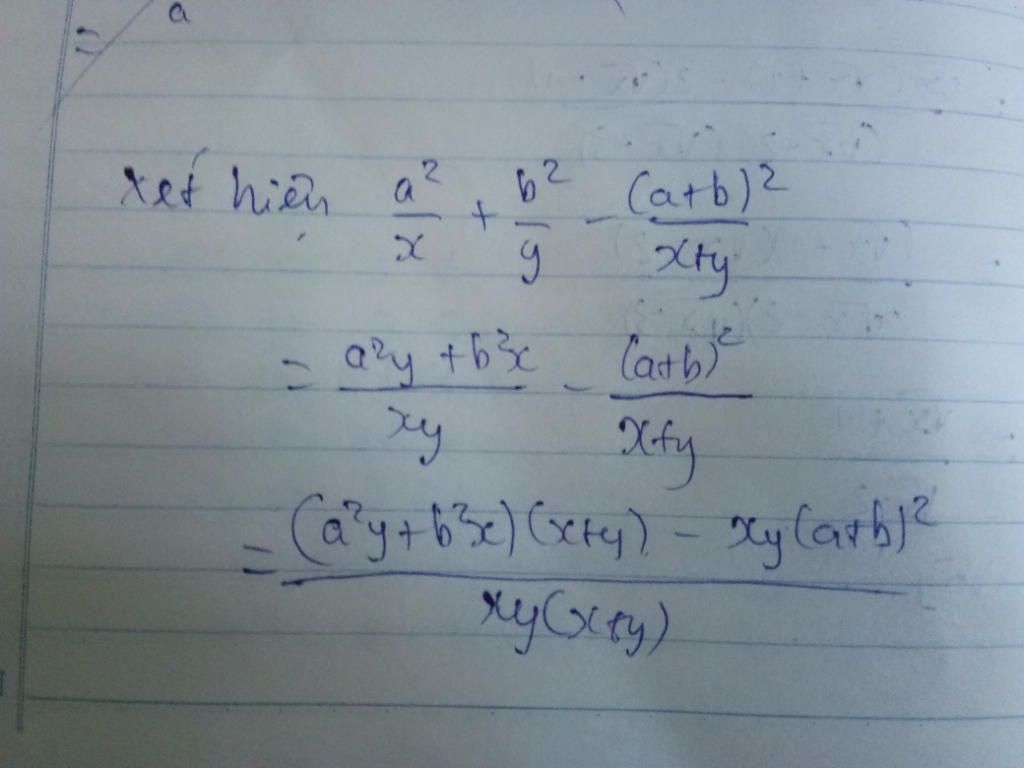 = a
Xét hiệu a²/x + b²/y - (a+b)²/x+y
= a²y + b²x/xy - (a+b)²/x+y
= (a²y + b²x)(x+y) - xy(a+b)²/xy(x+y)